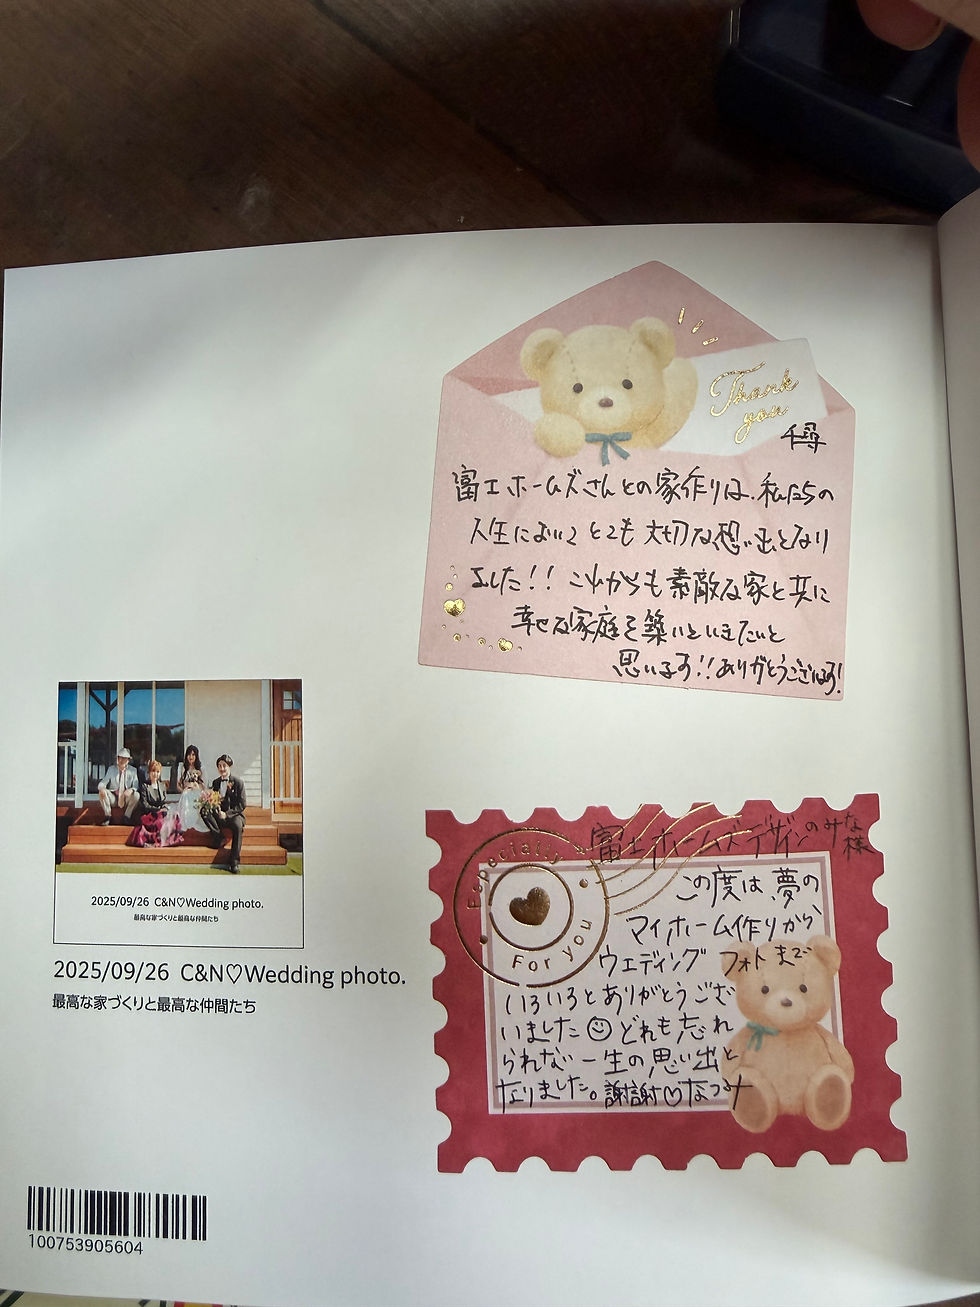 Thank
you
千尋
富士ホームズさんとの家作りは、私たちの
人生においてとても大切な想い出となり
ました!! これからも素敵な家と共に
幸せな家庭を築いていきたいと
思います!!ありがとうございます!
2025/09/26 C&N♡Wedding photo.
最高な家づくりと最高な仲間たち
2025/09/26 C&N♡Wedding photo.
最高な家づくりと最高な仲間たち
Especially
For you
富士ホームズデザインのみな様
この度は夢の
マイホーム作りから
ウェディングフォトまで
いろいろとありがとうござ
いました☺どれも忘れ
られない一生の思い出と
なりました。謝謝♡なつみ
100753905604